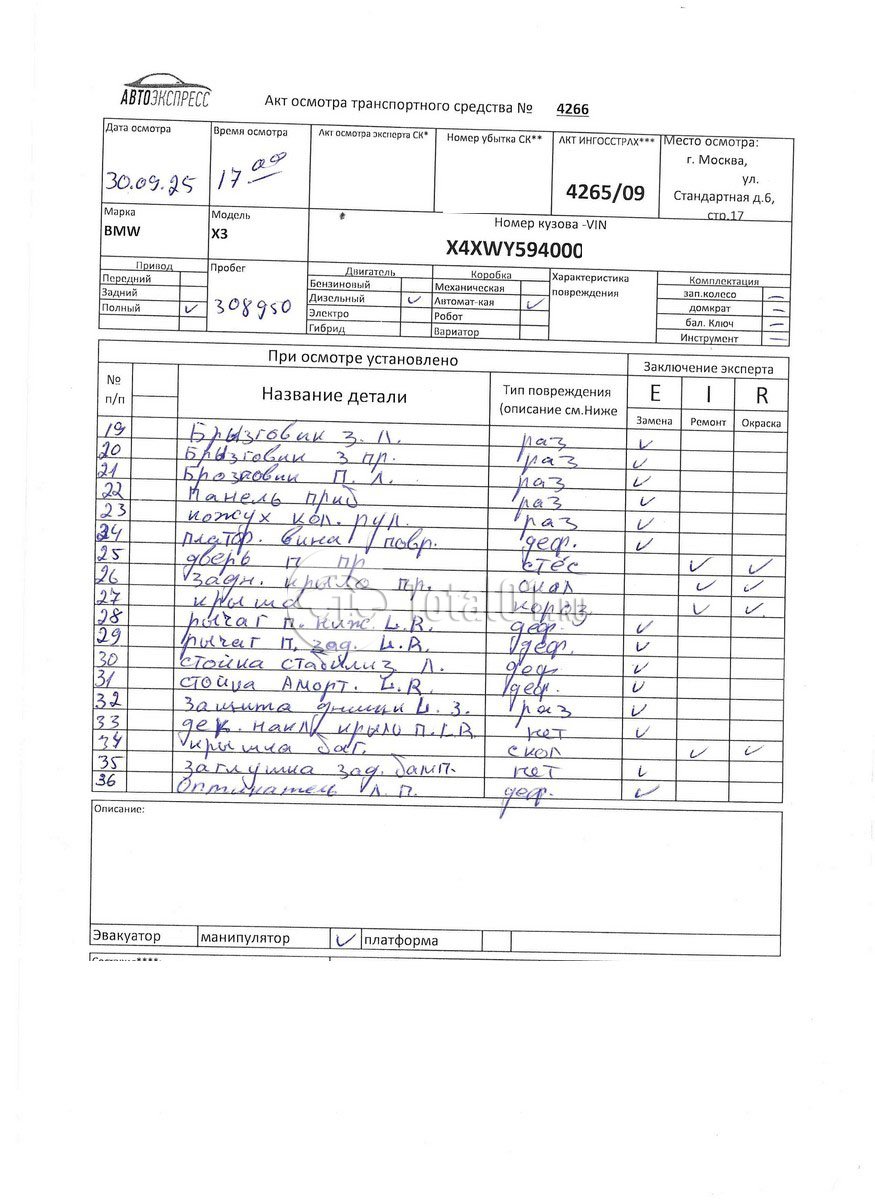 АВТОЭКСПРЕСС
Акт осмотра транспортного средства № 4266
Дата осмотра
30.09.25
Время осмотра
17 00
Акт осмотра эксперта СК*
Номер убытка СК**
АКТ ИНГОССТРАХ***
4265/09
Место осмотра:
г. Москва,
ул.
Стандартная д.6,
стр.17
Марка
BMW
Модель
X3
Номер кузова -VIN
X4XWY594000
Привод
Передний
Задний
Полный ✓
Пробег
308950
Двигатель
Бензиновый
Дизельный ✓
Электро
Гибрид
Коробка
Механическая
Автомат-кая ✓
Робот
Вариатор
Характеристика
повреждения
Комплектация
зап.колесо —
домкрат —
бал. Ключ —
Инструмент —
При осмотре установлено
Заключение эксперта
№
п/п
Название детали
Тип повреждения
(описание см.Ниже
E I R
Замена Ремонт Окраска
19 Брызговик З. Л. раз ✓
20 Брызговик З пр. раз ✓
21 Брозговик П. Л. раз ✓
22 Панель приб раз ✓
23 кожух кол. рул. раз ✓
24 повр. деф. ✓
25 дверь п пр стёс ✓ ✓
26 задн. крыло пр. ✓ ✓
27 крыша ✓ ✓
28 рычаг п. ниж. L.R. деф. ✓
29 рычаг п. зад. L.R. деф. ✓
30 стойка стабилиз Л. деф ✓
31 стойка Аморт. L.R. деф. ✓
32 Защита днища L. З. раз ✓
33 дек. накл крыло п. L.R. нет ✓
34 крышка баг. скол ✓ ✓
35 заглушка зад. бамп. нет ✓
36 Л. П. деф. ✓
Total01.RU
Описание:
Эвакуатор манипулятор ✓ платформа